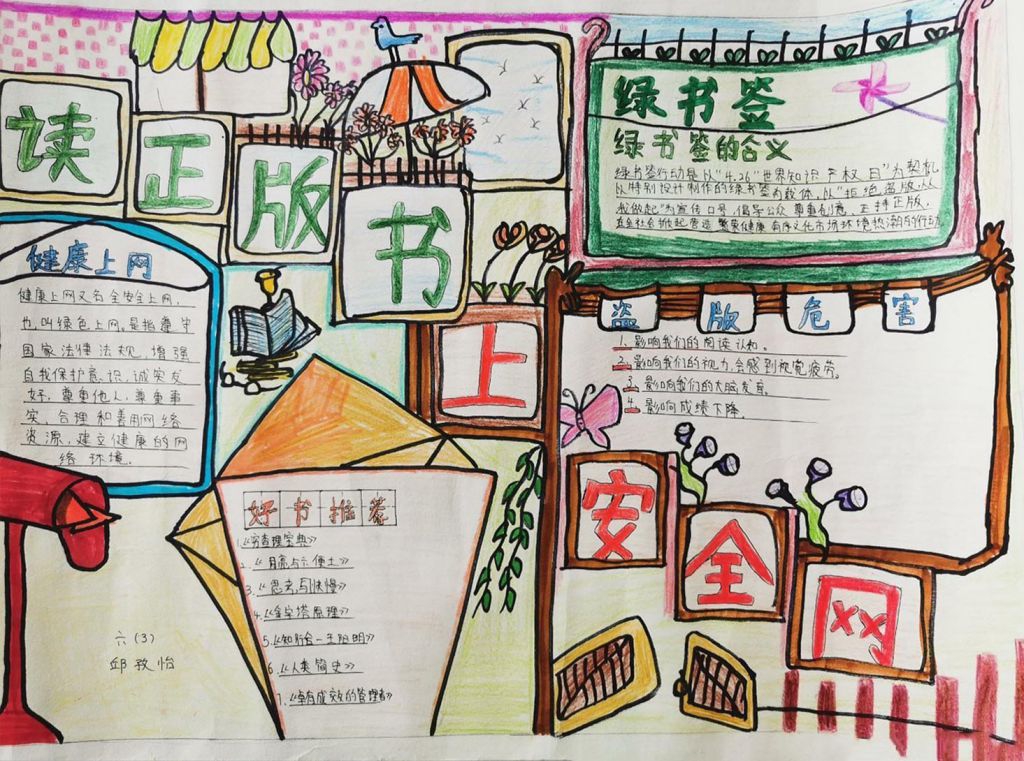 读正版书
上安全网
绿书签
绿书签的含义
绿书签行动是以"4.26"世界知识产权日"为契机
以特别设计制作的绿书签为载体,以"拒绝盗版,从
我做起"为宣传口号,倡导公众尊重创意,支持正版,
在全社会掀起营造繁荣健康有序文化市场环境热潮的行动
健康上网
健康上网又名全安全上网,
也叫绿色上网。是指遵守
国家法律法规,增强
自我保护意识,诚实友
好,尊重他人,尊重事
实,合理和善用网络
资源,建立健康的网
络环境。
盗版危害
1. 影响我们的阅读认和。
2. 影响我们的视力,会感到视觉疲劳。
3. 影响我们的大脑发育。
4. 影响成绩下降。
好书推荐
1.《穷查理宝典》
2.《月亮与六便士》
3.《思考,与快慢》
4.《金字塔原理》
5.《知行合一王阳明》
6.《人类简史》
7.《卓有成效的管理者》
六(3)
邱孜怡